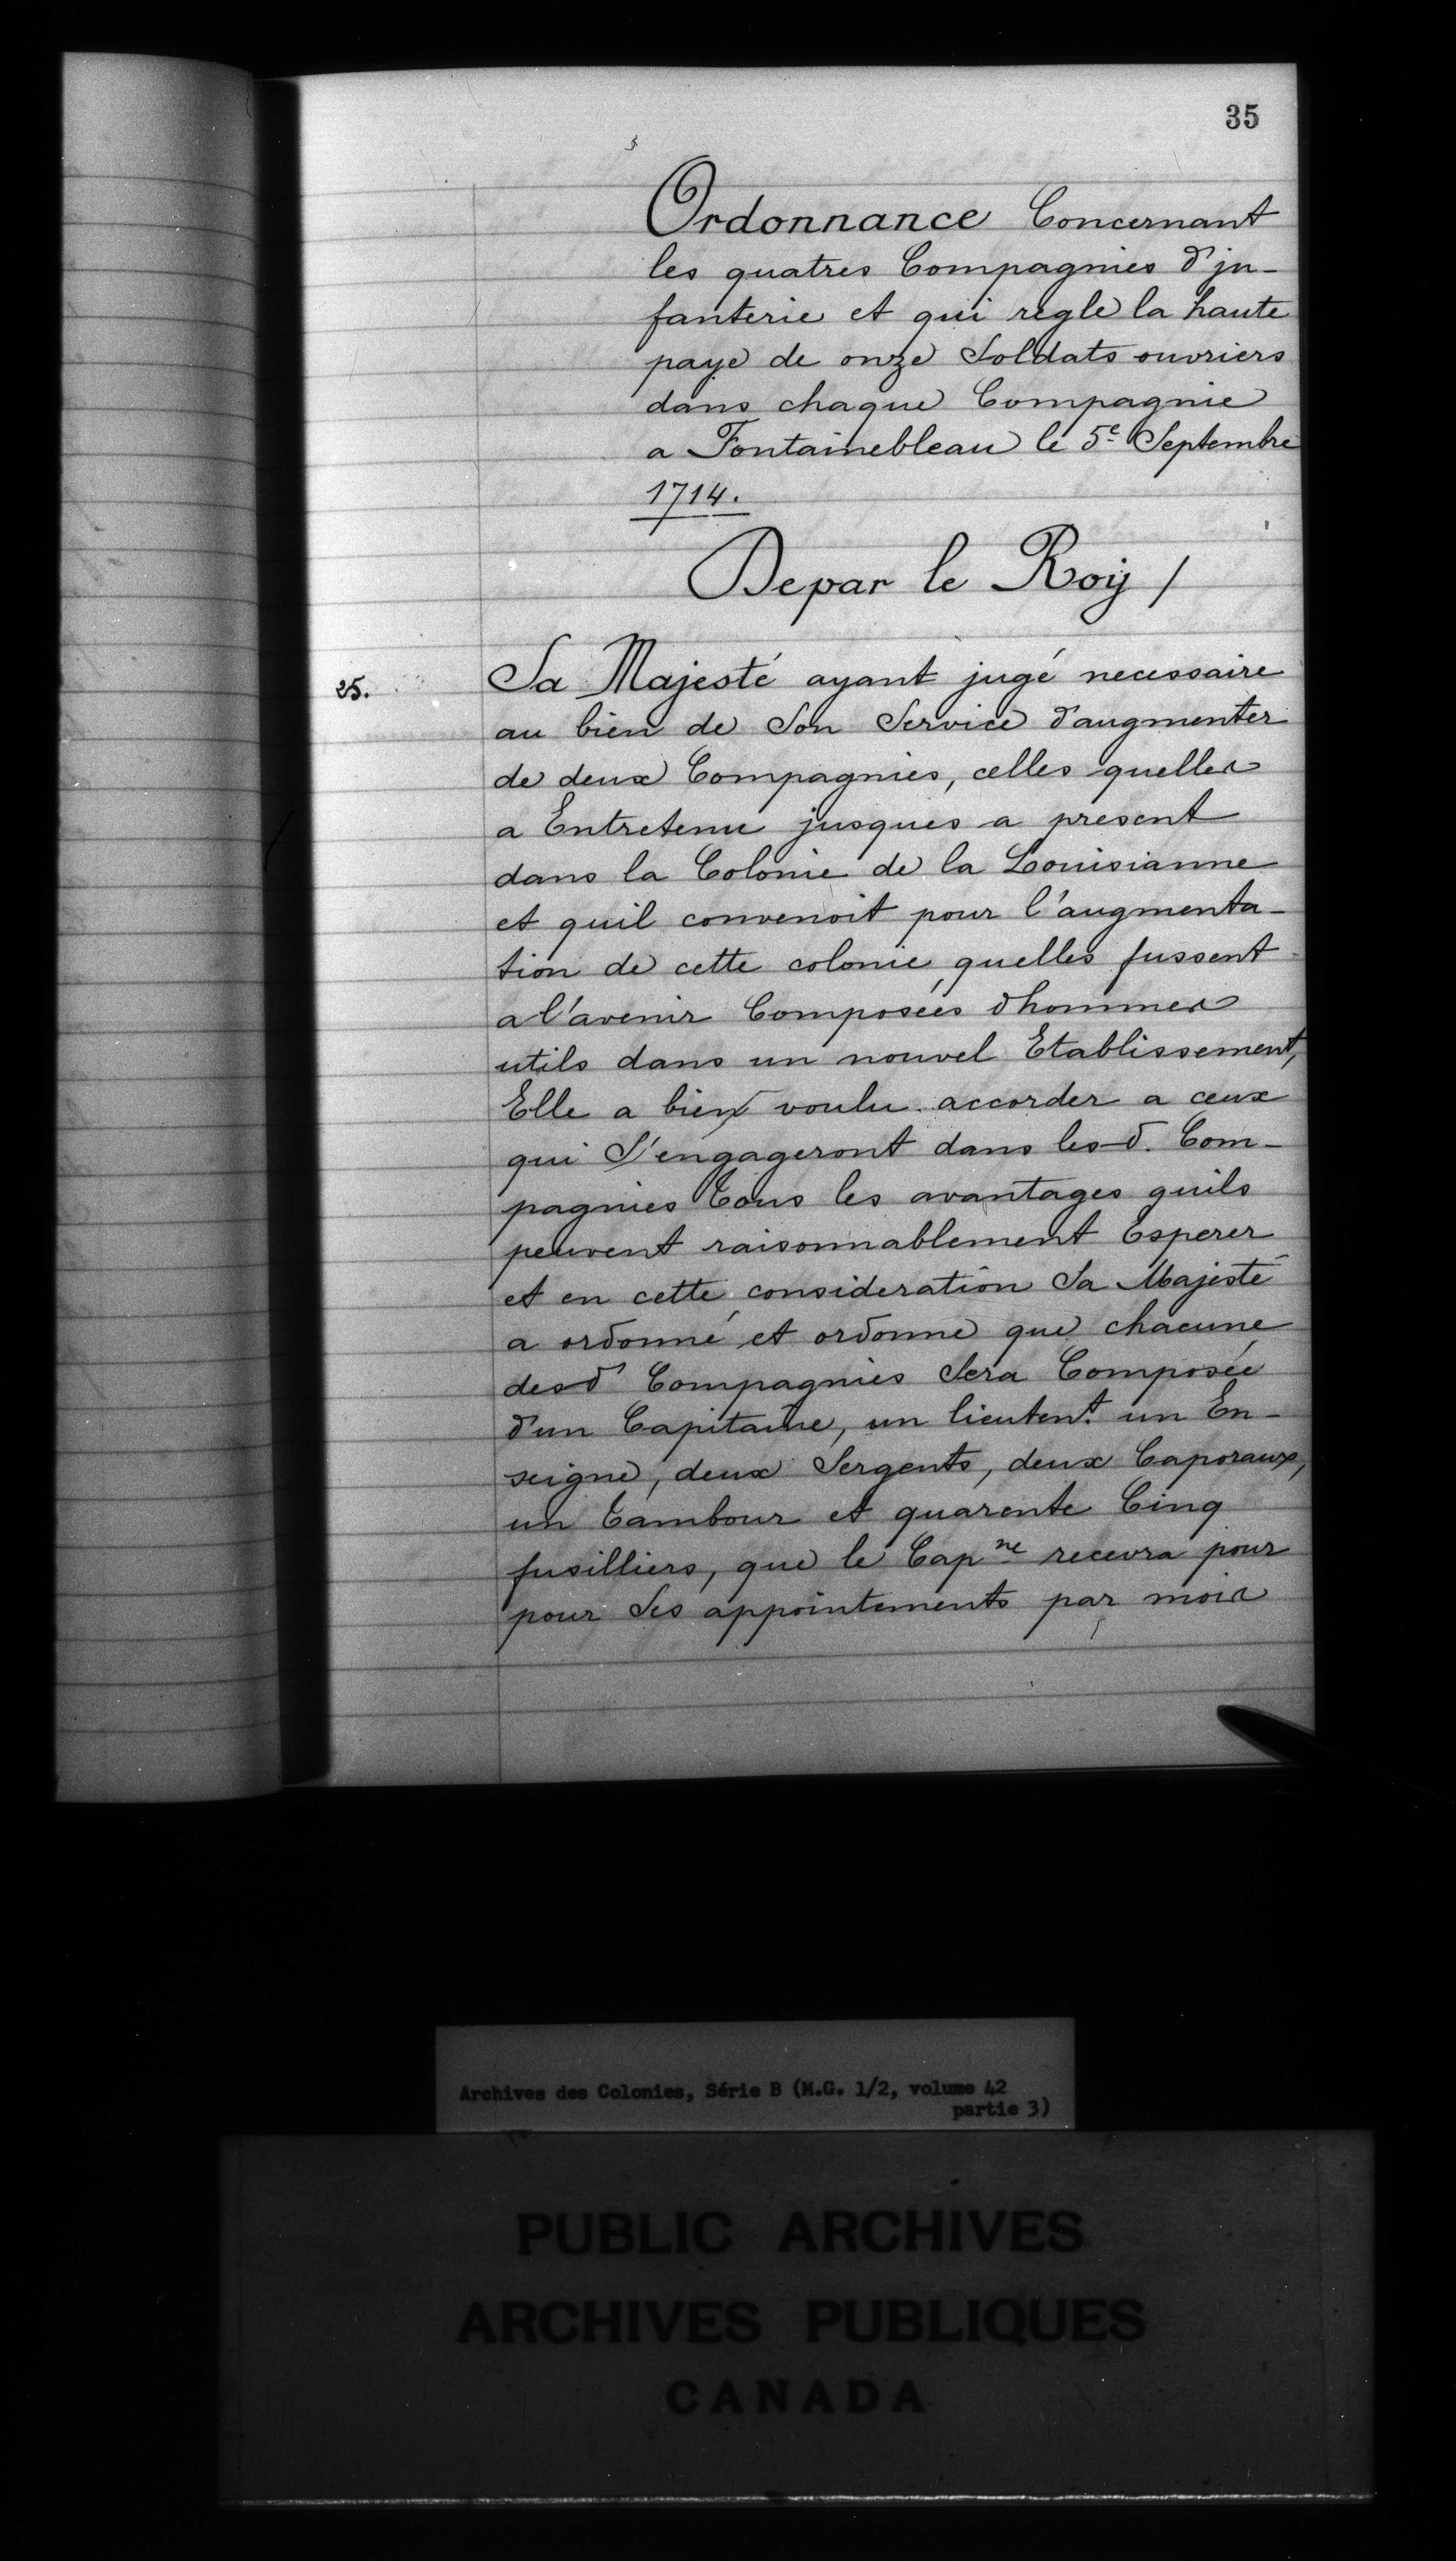 35
Ordonnance Concernant
les quatres Compagnies d'jn-
fanterie et qui regle la haute
paye de onze Soldats ouvriers
dans chaque Compagnie
a Fontainebleau le 5e Septembre
1714.
Depar le Roÿ /
25.
Sa Majesté ayant jugé necessaire
au bien de Son Service d'augmenter
de deux Compagnies, celles quelles
a Entretenu jusques a present
dans la Colonie de la Louisianne
et quil convenoit pour l'augmenta-
tion de cette colonie quelles fussent
a l'avenir Composées d'hommes
utils dans un nouvel Etablissement,
Elle a bien voulu accorder a ceux
qui S'engageront dans les d. Com-
pagnies tous les avantages quils
peuvent raisonnablement Esperer
et en cette consideration Sa Majesté
a ordonné et ordonne que chacune
des d' Compagnies Sera Composée
d'un Capitaine, un lieutent. un En-
seigne, deux Sergents, deux Caporaux,
un tambour et quarente Cinq
fusilliers, que le Capne recevra pour
pour Ses appointements par mois
Archives des Colonies, Série B (M.G. 1/2, volume 42
partie 3)
PUBLIC ARCHIVES
ARCHIVES PUBLIQUES
CANADA